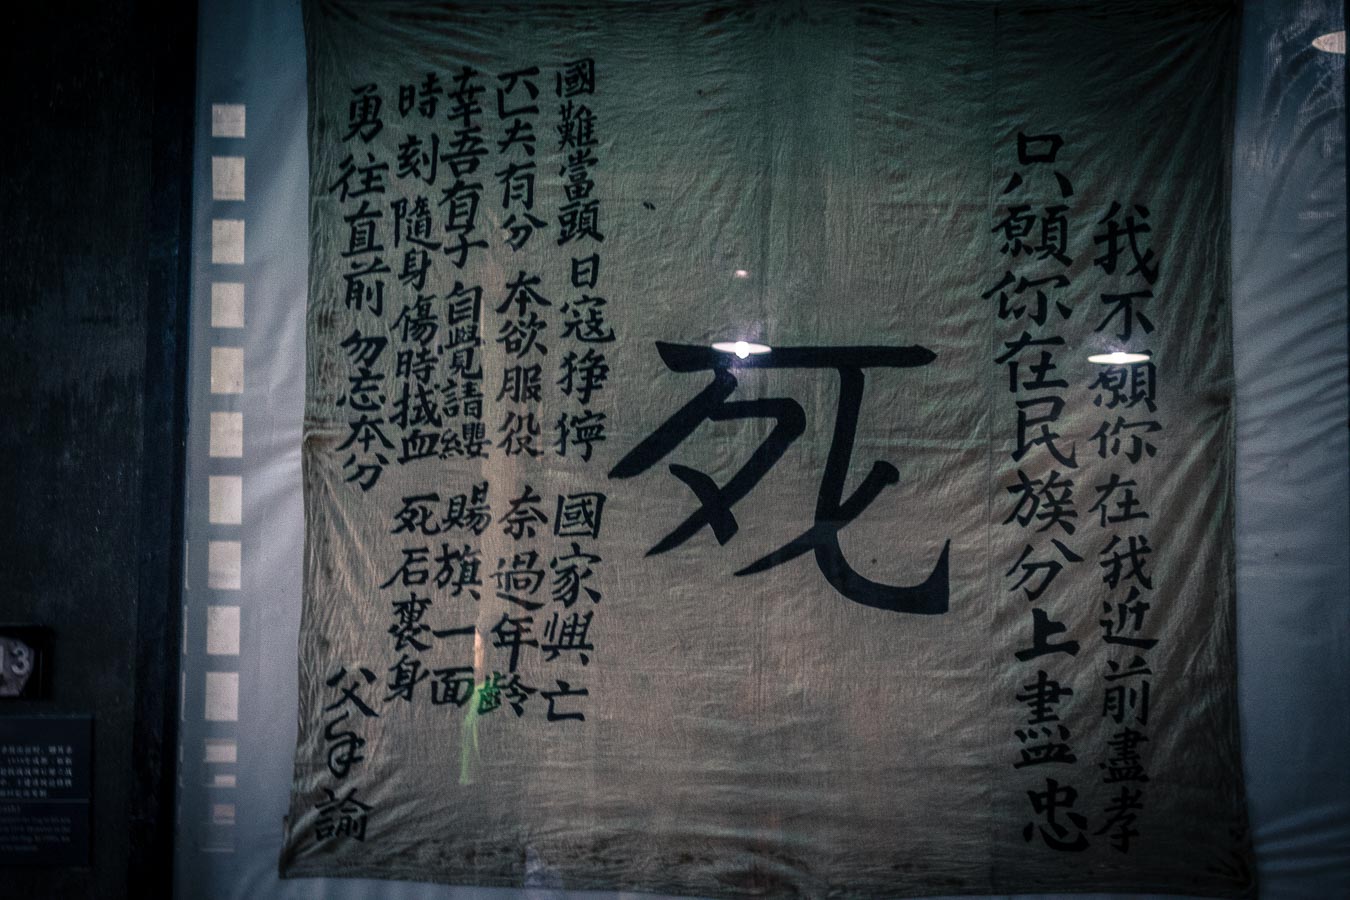 我不願你在我近前盡孝
只願你在民族分上盡忠
死
國難當頭 日寇猙獰 國家興亡
匹夫有分 本欲服役 奈過年齡
幸吾有子 自覺請纓 賜旗一面
時刻隨身 傷時拭血 死后裹身
勇往直前 勿忘本分 父手諭
13